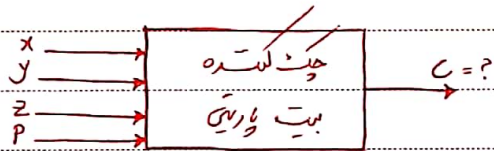 x
y
z
P
چک کننده
بیت پاریتی
C = ?